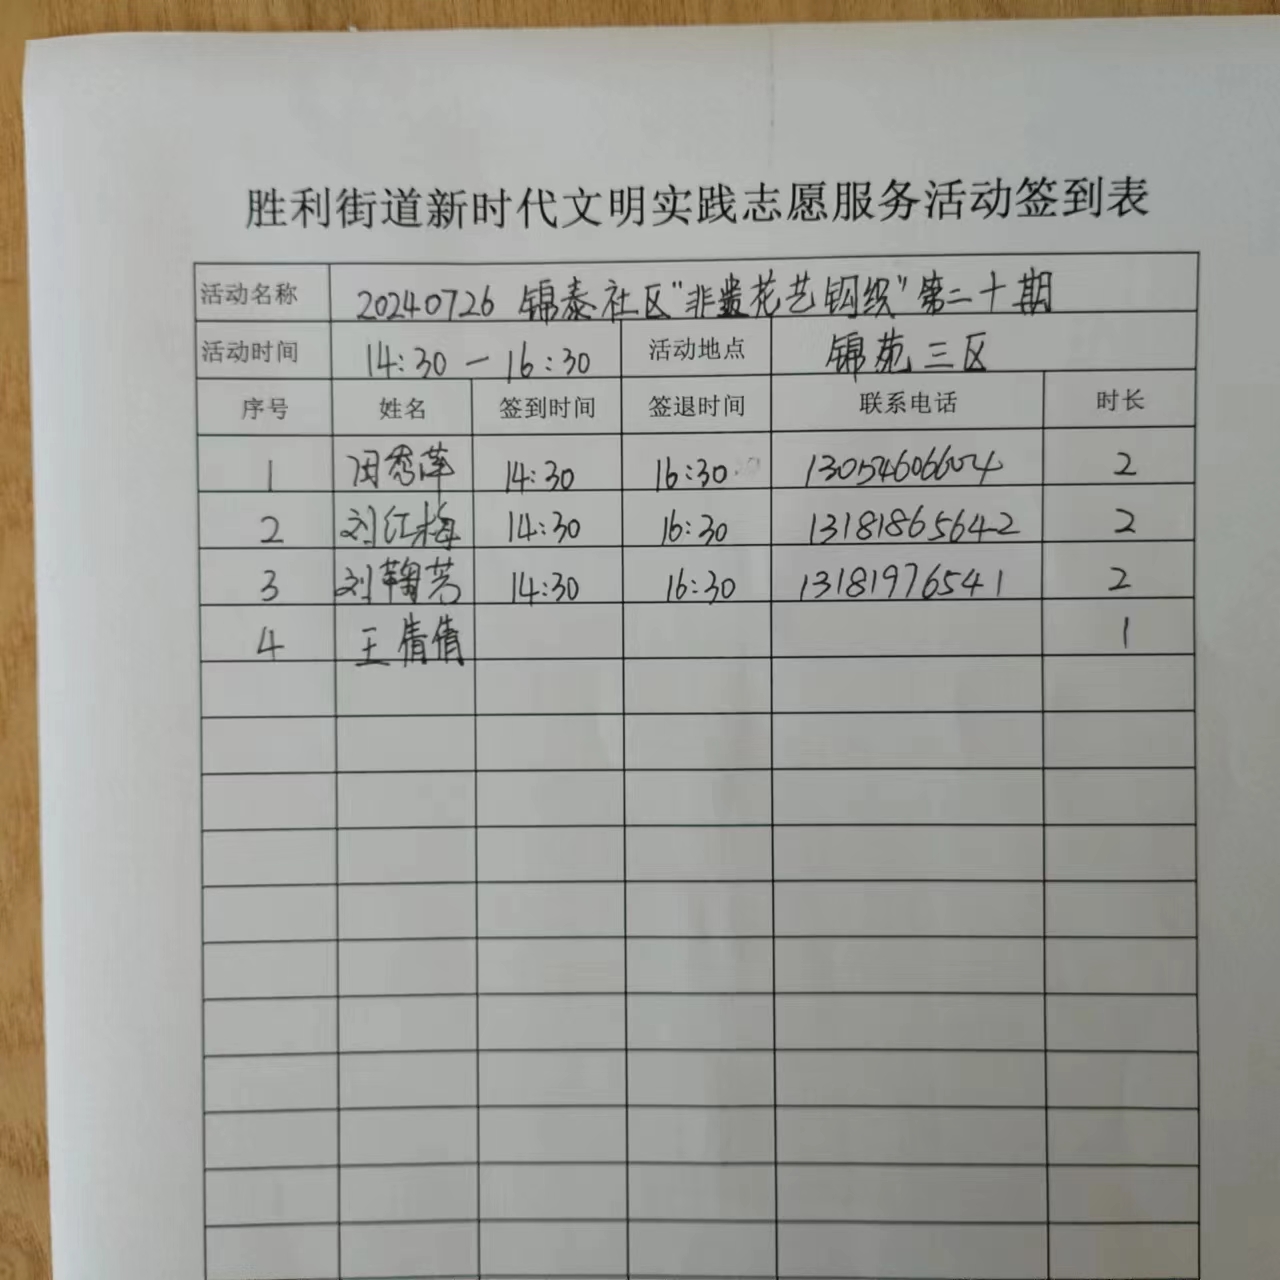 胜利街道新时代文明实践志愿服务活动签到表
活动名称 20240726 锦泰社区"非遗花艺钩织"第二十期
活动时间 14:30 — 16:30 活动地点 锦苑三区
序号 姓名 签到时间 签退时间 联系电话 时长
1 秀萍 14:30 16:30 2
2 刘红梅 14:30 16:30 13181865642 2
3 刘鞠芳 14:30 16:30 13181976541 2
4 王倩倩 1